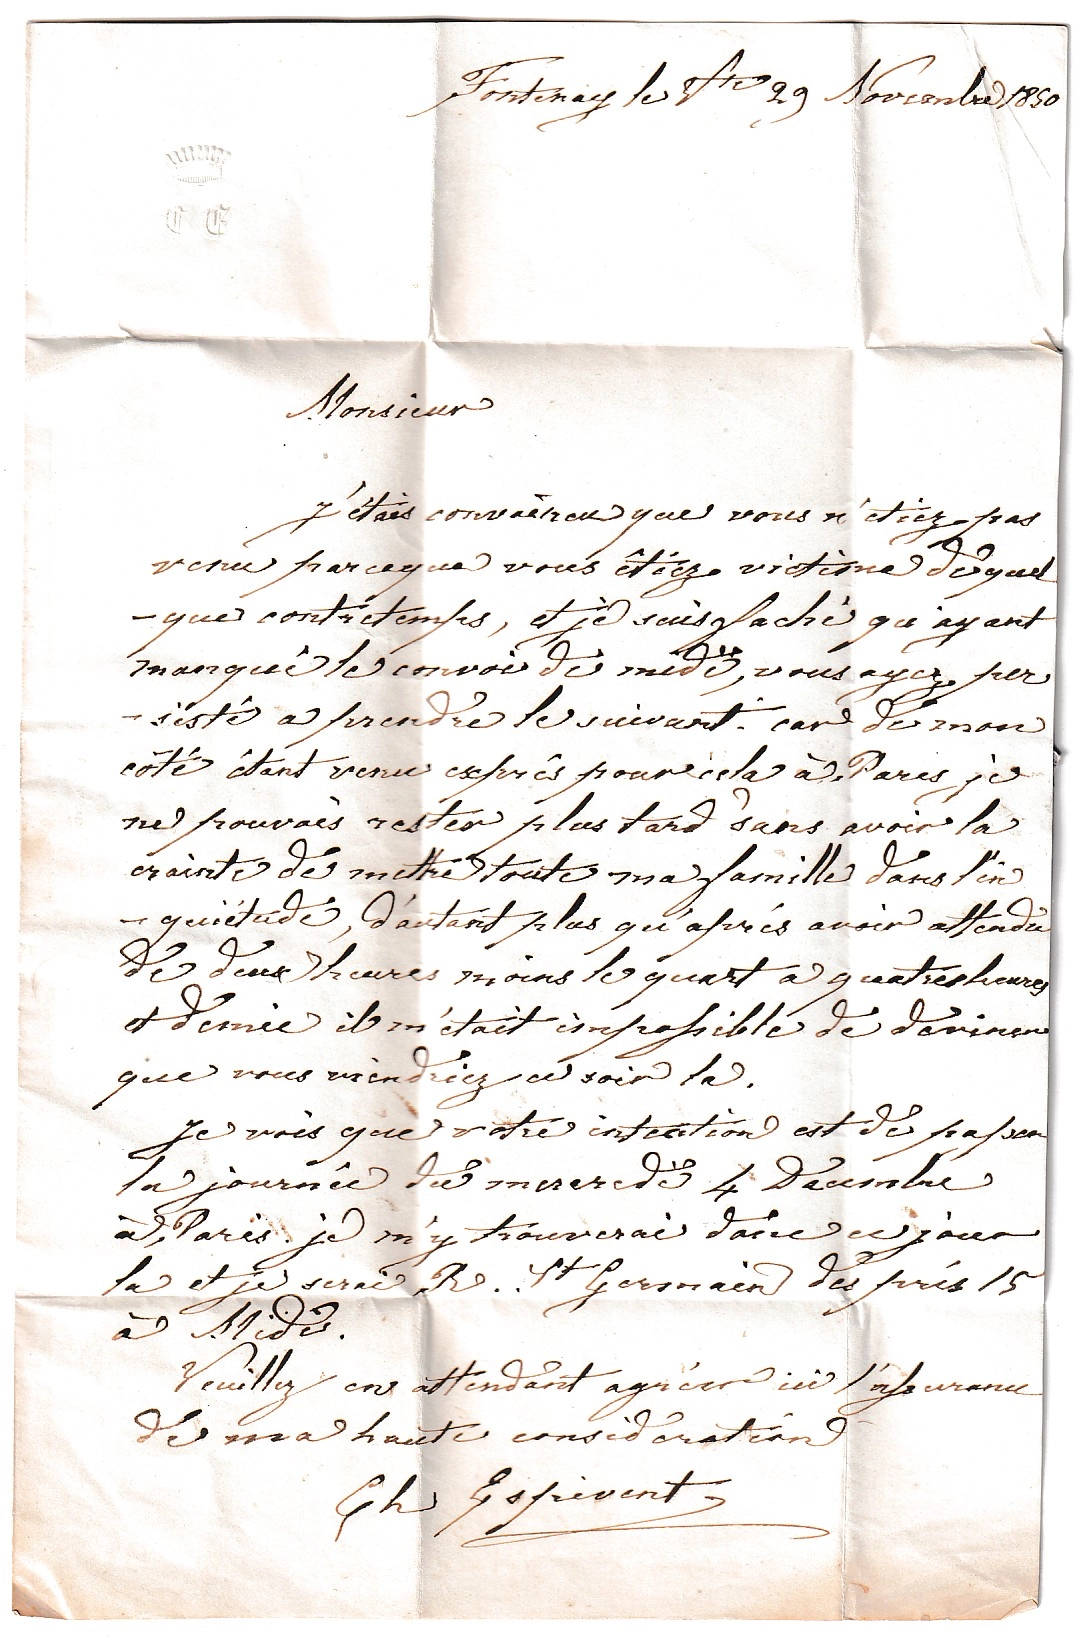 Fontenay le Vte 29 Novembre 1850
C E
Monsieur
J'étais convaincu que vous n'étiez pas
venu parceque vous étiez victime de quel
-que contretemps, et je suis faché qu'ayant
manqué le convoi de midi, vous ayez per
-sisté a prendre le suivant. car de mon
côté étant venu exprès pour cela à Paris je
ne pouvais rester plus tard sans avoir la
crainte de mettre toute ma famille dans l'in
-quiétude, d'autant plus qu'après avoir attendu
de deux heures moins le quart a quatre heures
et demie il m'était impossible de deviner
que vous viendriez ce soir la.
Je vois que votre intention est de passer
la journée du mercredi 4 Decembre
à Paris. je m'y trouverai donc ce jour
la et je serai R. St Germain des prés 15
à Midi.
Veuillez en attendant agréer ici l'assurance
de ma haute considération
Ch Espivent